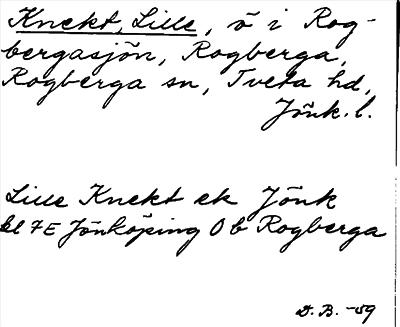 Knekt, Lille, ö i Rog-
bergasjön, Rogberga,
Rogberga sn, Tveta hd,
Jönk. l.
Lille Knekt ek Jönk
bl 7E Jönköping O b Rogberga
D. B. -59